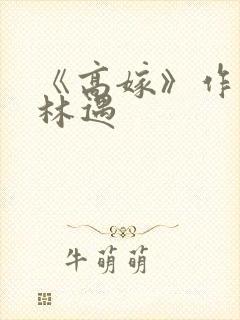 《高嫁》作
林遇
牛萌萌